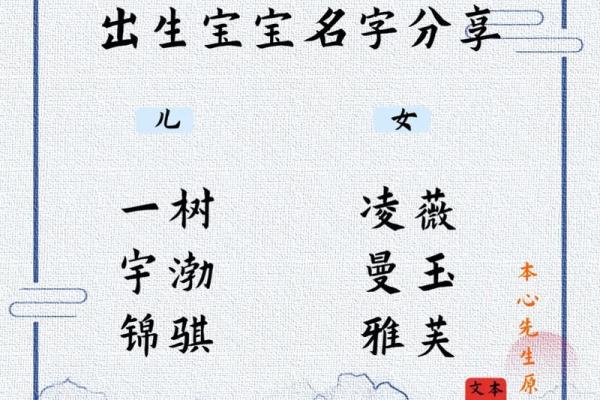 出生宝宝名字分享
儿 女
一树 凌薇
宇渤 曼玉
锦骐 雅芙
本心先生原
文本